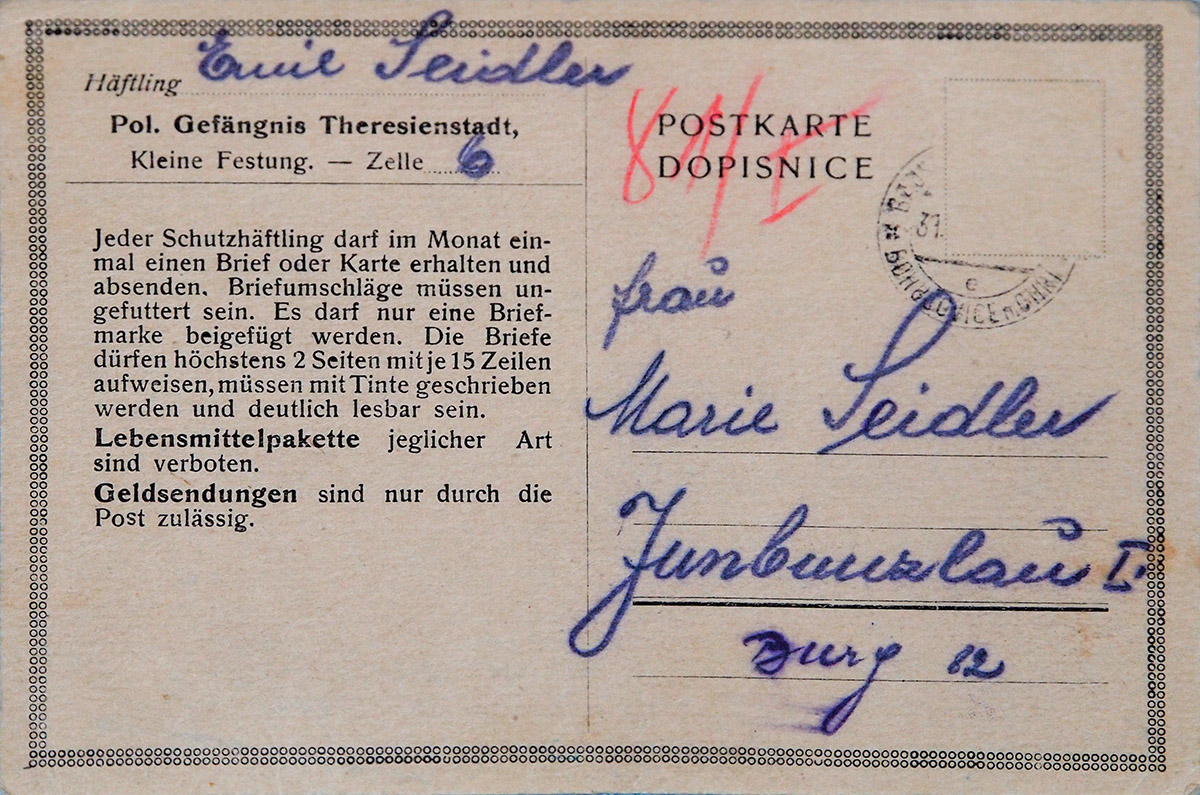 Häftling Emil Seidler
Pol. Gefängnis Theresienstadt,
Kleine Festung. — Zelle 6
Jeder Schutzhäftling darf im Monat ein-
mal einen Brief oder Karte erhalten und
absenden. Briefumschläge müssen un-
gefuttert sein. Es darf nur eine Brief-
marke beigefügt werden. Die Briefe
dürfen höchstens 2 Seiten mit je 15 Zeilen
aufweisen, müssen mit Tinte geschrieben
werden und deutlich lesbar sein.
Lebensmittelpakette jeglicher Art
sind verboten.
Geldsendungen sind nur durch die
Post zulässig.
POSTKARTE
DOPISNICE
31.
e
Frau
Marie Seidler
Junbunzlau I.
Burg 12